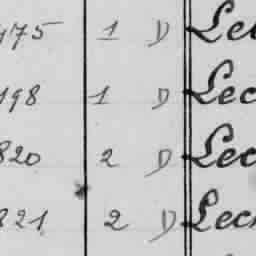 475 1 D Le
198 1 D Lec
820 2 D Lec
821 2 D Lec